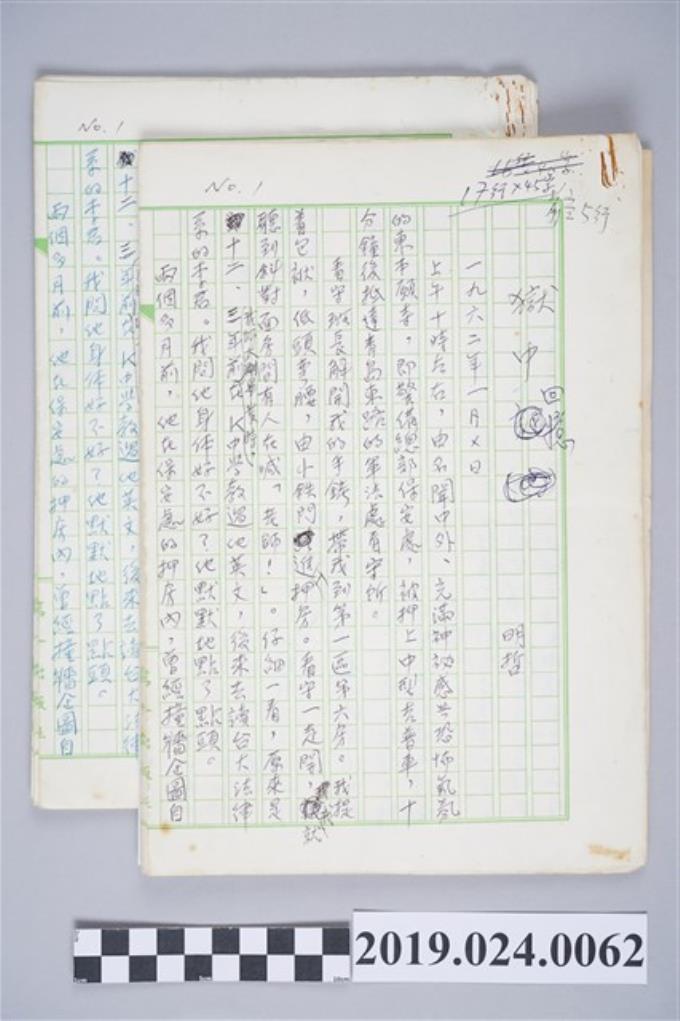 No. 1
17行×45字
5行
獄中回憶
明哲
一九六二年一月×日
上午十時左右，由名聞中外、充滿神祕感与恐怖氣氛
的東本願寺，即警備總部保安處，被押上中型吉普車，十
分鐘後抵達青島東路的軍法處看守所。
看守班長解開我的手銬，帶我到第一區第六房。我提
著包袱，低頭彎腰，由小鐵門進押房。看守一走開，我就
聽到斜對面房間有人在喊「老師！」。仔細一看，原來是
十二、三年前在K中學教過他英文，後來去讀台大法律
系的李君。我問他身体好不好？他默默地點了點頭。
兩個多月前，他在保安處的押房內，曾經撞牆企圖自
No. 1
十二、三年前在K中學教過他英文，後來去讀台大法律
系的李君。我問他身体好不好？他默默地點了點頭。
兩個多月前，他在保安處的押房內，曾經撞牆企圖自
2019.024.0062